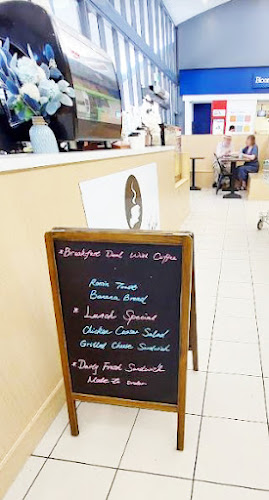 * Breakfast Deal With Coffee
Rasin Toast
Banana Bread
* Lunch Special
Chicken Caesar Salad
Grilled Cheese Sandwich
* Daily Fresh Sandwich
Made To order